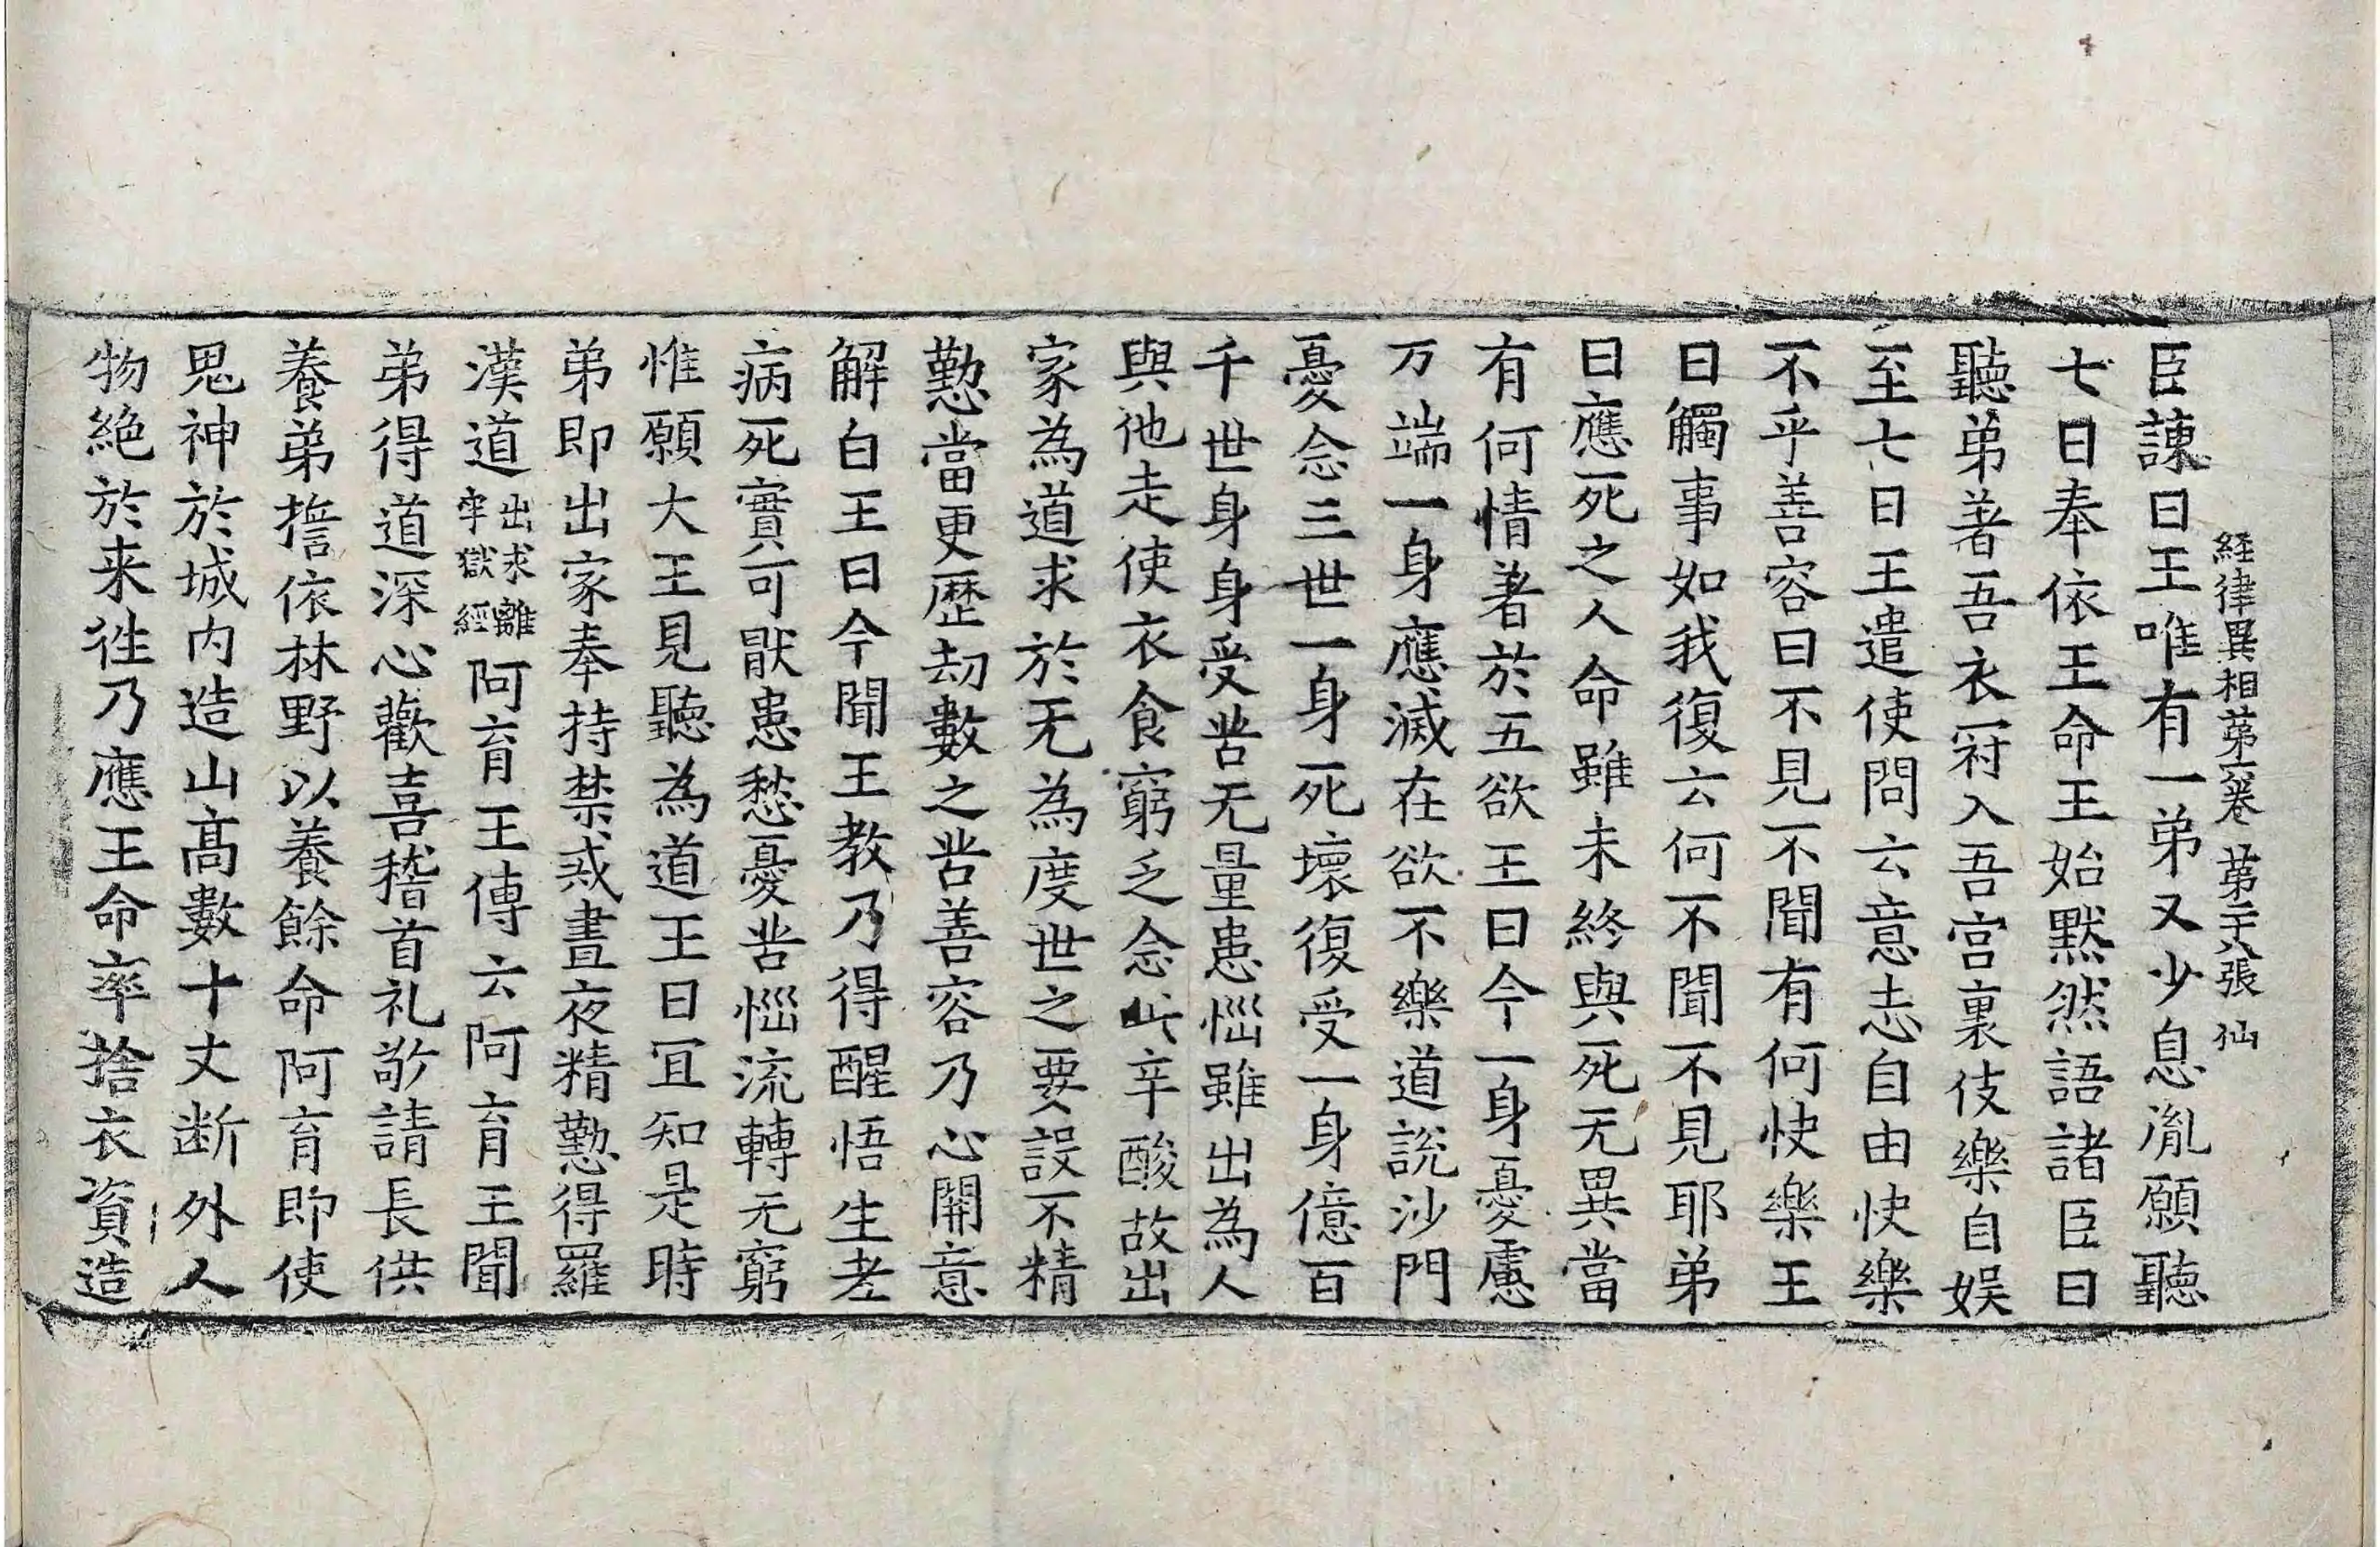 経律異相苐六卷 苐二十八張 仙
臣諫曰王唯有一弟又少息胤願聽
七日奉依王命王始默然語諸臣曰
聽弟著吾衣冠入吾宫裏伎樂自娱
至七日王遣使問云意志自由快樂
不乎善容曰不見不聞有何快樂王
曰觸事如我復云何不聞不見耶弟
曰應死之人命雖未終與死无異當
有何情著於五欲王曰今一身憂慮
万端一身應滅在欲不樂道説沙門
憂念三世一身死壞復受一身億百
千世身身受苦无量患惱雖出為人
與他走使衣食窮乏念此辛酸故出
家為道求於无為度世之要設不精
懃當更歷劫數之苦善容乃心開意
解白王曰今聞王教乃得醒悟生老
病死實可猒患愁憂苦惱流轉无窮
惟願大王見聽為道王曰冝知是時
弟即出家奉持禁戒晝夜精懃得羅
漢道出求離牢獄經阿育王傳云阿育王聞
弟得道深心歡喜稽首礼敬請長供
養弟誓依林野以養餘命阿育即使
鬼神於城内造山髙數十丈断外人
物絶於来往乃應王命率捨衣資造